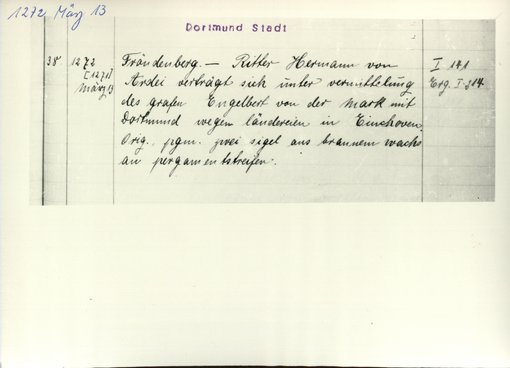 1272 März 13
Dortmund Stadt
38 1272 Fröndenberg. — Ritter Hermann von I 141
[1271] Ardei verträgt sich unter vermittelung Erg. I 314.
März 13 des grafen Engelbert von der Mark mit
Dortmund wegen ländereien in Einchoven.
Orig. pgm. zwei sigel aus braunem wachs
an pergamentstreifen.